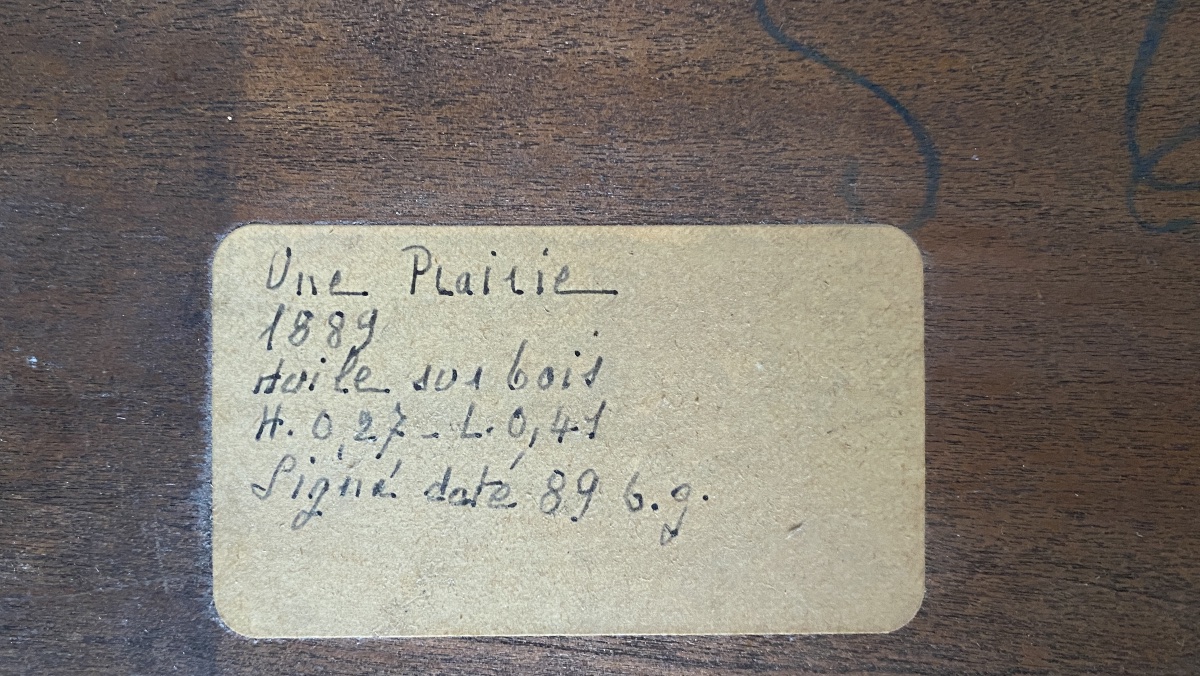 Une Prairie
1889
Huile sur bois
H. 0,27 - L. 0,41
Signé daté 89 b.g.